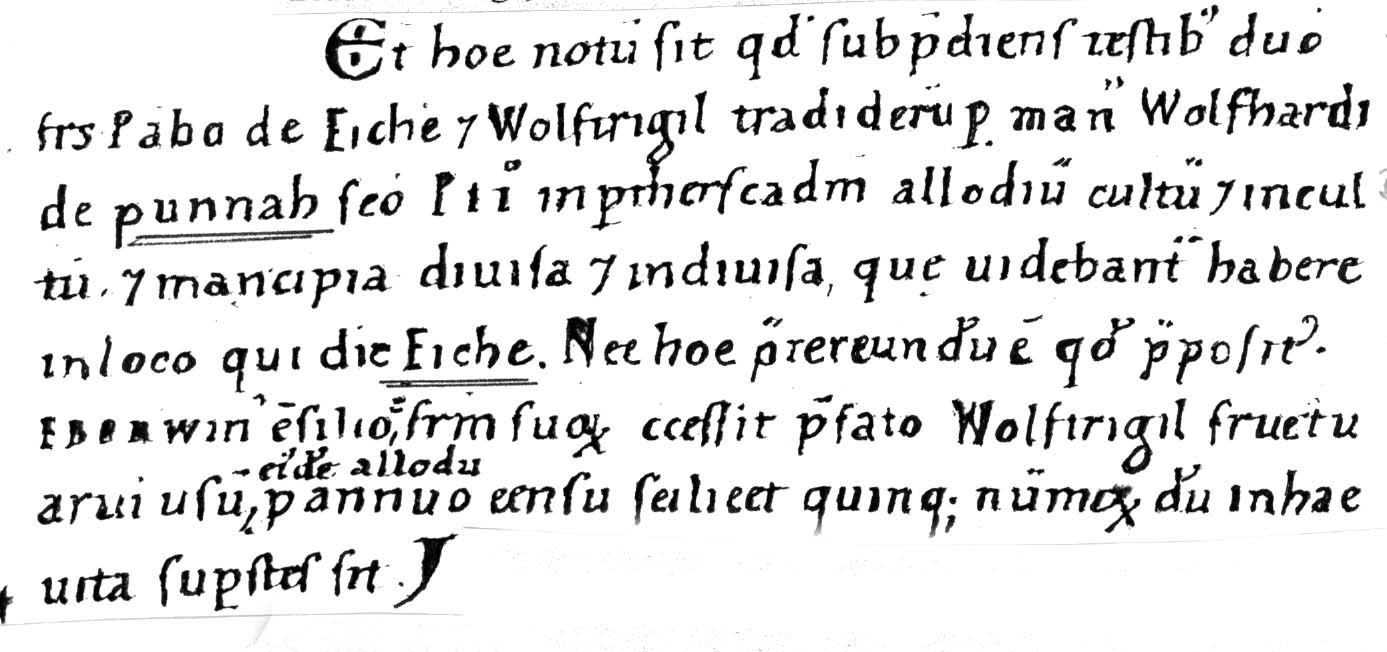 Et hoc notū sit qd̄ sub p̄dicns testib⁹ duo
frs Pabo de Eiche ⁊ Wolftrigil tradiderūt p man⁹ Wolfhardi
de punnah sco Ptr̄ in prhterscadm allodiū cultū ⁊ incul
tū. ⁊ mancipia diuisa ⁊ indiuisa, que uidebant̄ habere
in loco qui dic̄ Eiche. Nec hoc p̄tereundū ē qd̄ p̄posit⁹.
EBERWIN⁹ ꝯsilio frm̄ suoꝝ ꝯcessit p̄fato Wolftrigil fructu
eide allodii
ariū usū, p annuo censu scilicet quinq; nūmoꝝ dū in hac
uita supstes sit.